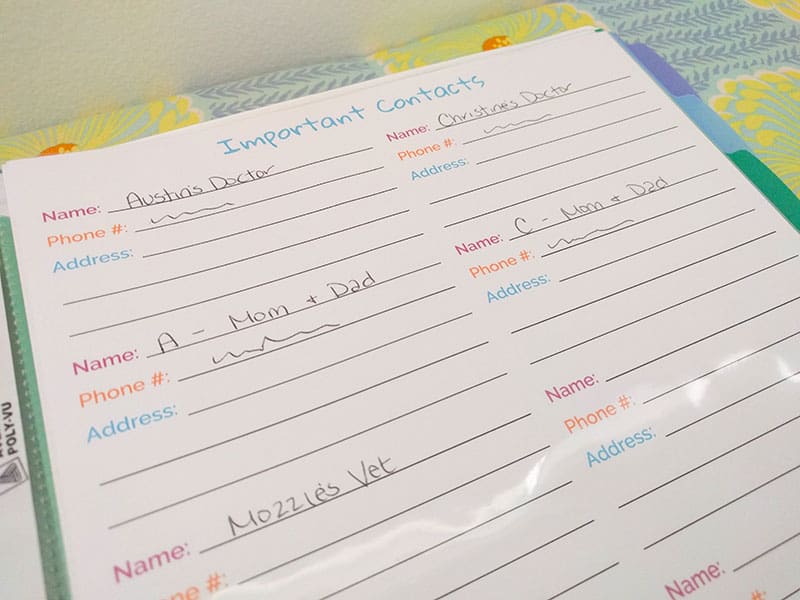 Important Contacts
Name: Austin's Doctor
Phone #:
Address:
Name: Christine's Doctor
Phone #:
Address:
Name: A - Mom + Dad
Phone #:
Address:
Name: C - Mom + Dad
Phone #:
Address:
Name: Mozzie's Vet
ne #:
Name:
Phone #:
Address:
Name:
#:
POLY-VU